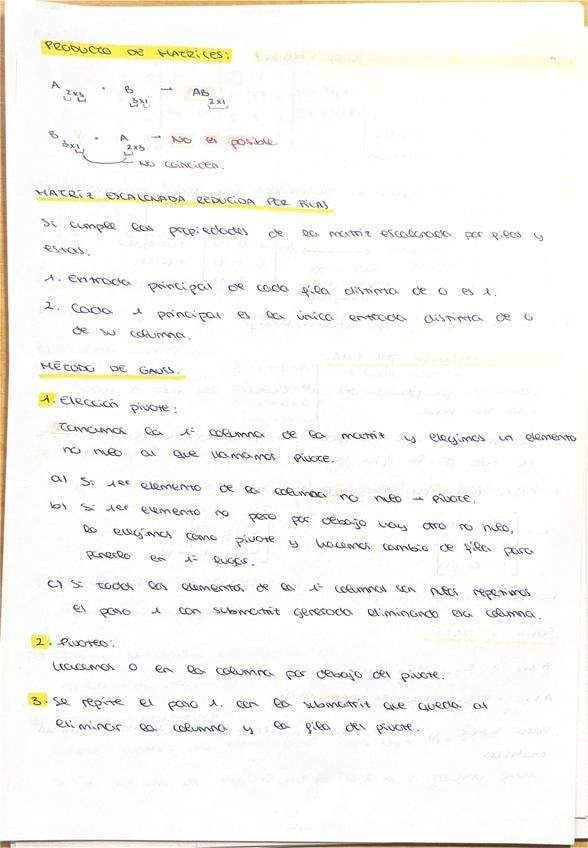 PRODUCTO DE MATRICES:
A 2x3 · B 3x1 → AB 2x1
B 3x1 · A 2x3 → NO es posible
NO COINCIDEN.
MATRIZ ESCALONADA REDUCIDA POR FILAS
Si cumple las propiedades de la matriz escalonada por filas y
estas:
1. Entrada principal de cada fila distinta de 0 es 1.
2. Cada 1 principal es la única entrada distinta de 0
de su columna.
MÉTODO DE GAUSS.
1. Elección pivote:
Tomamos la 1ª columna de la matriz y elegimos un elemento
no nulo al que llamamos pivote.
a) Si 1er elemento de la columna no nulo → pivote.
b) Si 1er elemento no pero por debajo hay otro no nulo,
lo elegimos como pivote y hacemos cambio de fila para
ponerlo en 1er lugar.
c) Si todos los elementos de la 1ª columna son nulos repetimos
el paso 1 con submatriz generada eliminando esa columna.
2. Pivoteo:
Hacemos 0 en la columna por debajo del pivote.
3. Se repite el paso 1. con la submatriz que queda al
eliminar la columna y la fila del pivote.